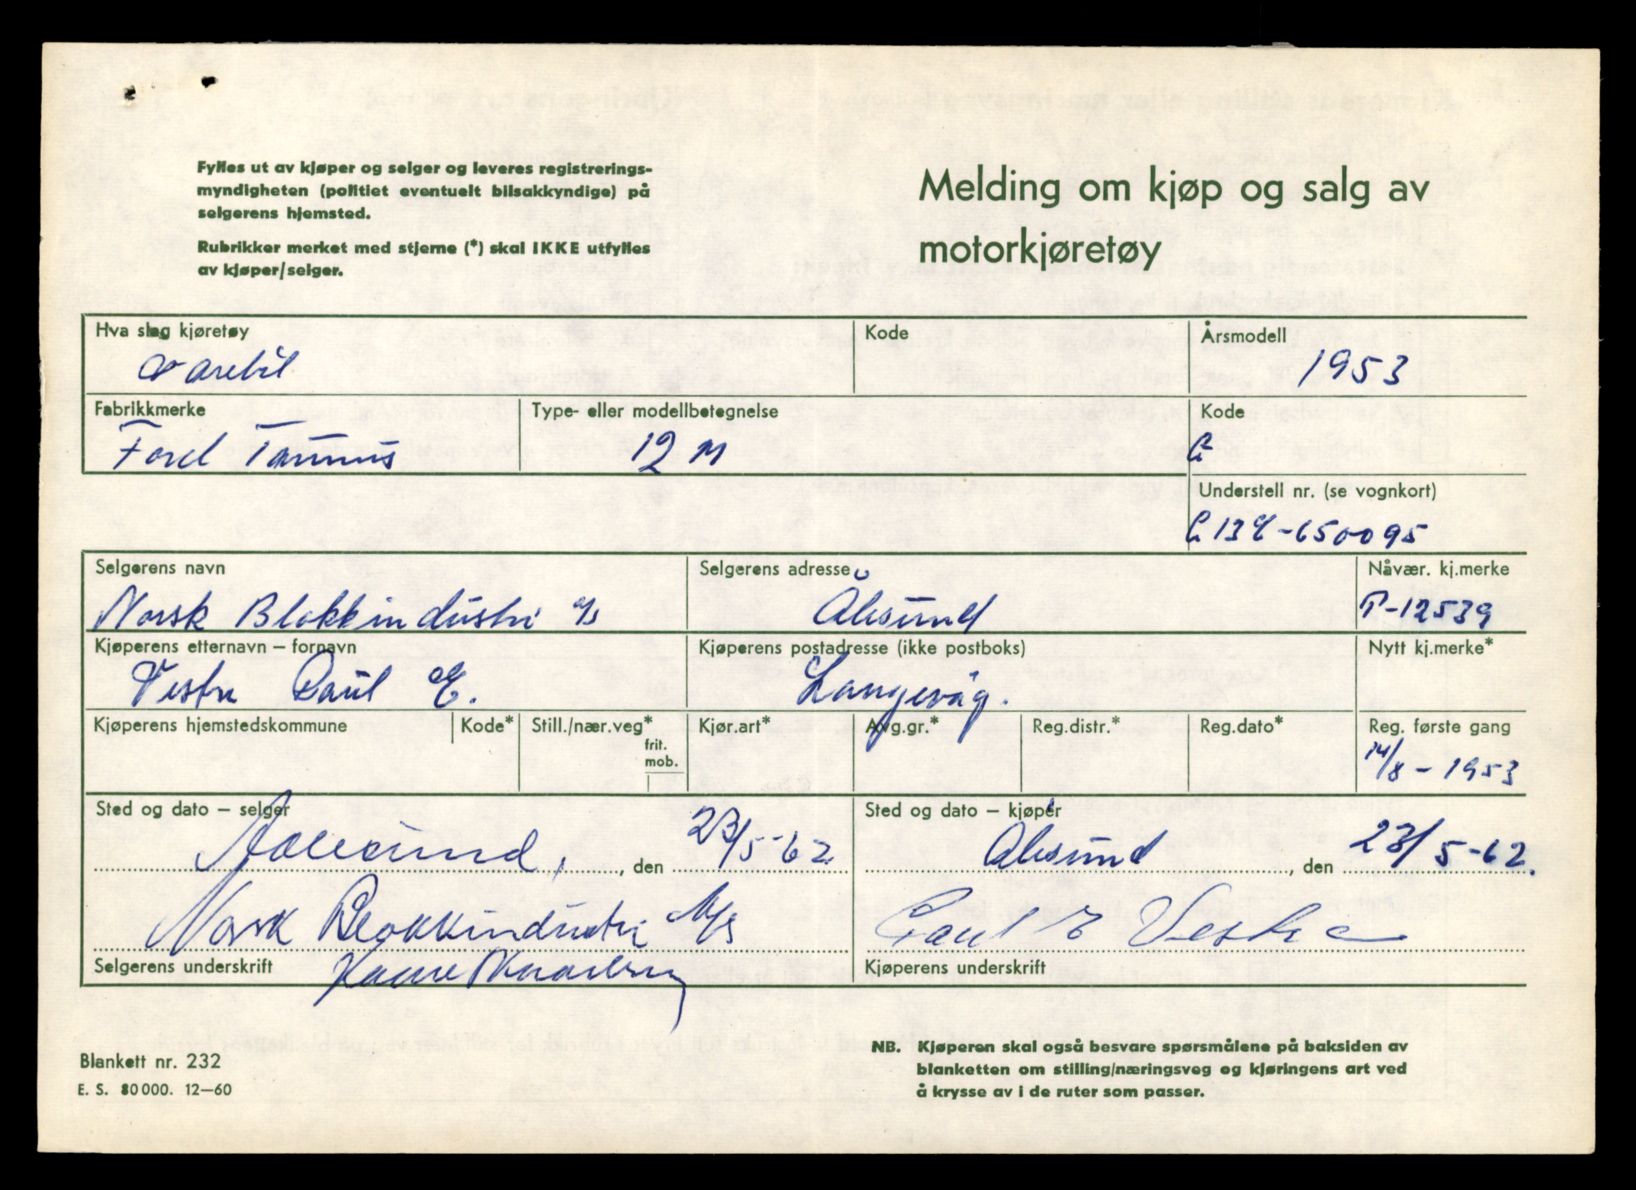 Fylles ut av kjøper og selger og leveres registrerings-
myndigheten (politiet eventuelt bilsakkyndige) på
selgerens hjemsted.
Rubrikker merket med stjerne (*) skal IKKE utfylles
av kjøper/selger.
Melding om kjøp og salg av
motorkjøretøy
Hva slag kjøretøy
Varebil
Kode
Årsmodell
1953
Fabrikkmerke
Ford Taunus
Type- eller modellbetegnelse
12 M
Kode
G
Understell nr. (se vognkort)
G13
-650095
Selgerens navn
Norsk Blokkindustri A/S
Selgerens adresse
Ålesund
Nåvær. kj.merke
T-12539
Kjøperens etternavn – fornavn
Vestre Paul E.
Kjøperens postadresse (ikke postboks)
Langevåg.
Nytt kj.merke*
Kjøperens hjemstedskommune
Kode*
Still./nær.veg*
frit.
mob.
Kjør.art*
Avg.gr.*
Reg.distr.*
Reg.dato*
Reg. første gang
14/8 - 1953
Sted og dato – selger
Aalesund, , den 23/5-62
Sted og dato – kjøper
Ålesund , den 23/5-62.
Norsk Blokkindustri A/S
Paul E Vestre
Selgerens underskrift
Kjøperens underskrift
Blankett nr. 232
E. S. 80000. 12—60
NB. Kjøperen skal også besvare spørsmålene på baksiden av
blanketten om stilling/næringsveg og kjøringens art ved
å krysse av i de ruter som passer.